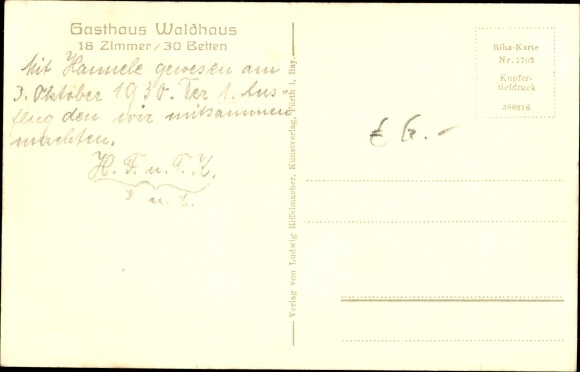 Gasthaus Waldhaus
18 Zimmer / 30 Betten
Mit Hannele gewesen am
3. Oktober 1930. Der 1. Aus-
flug den wir mitsammen
machten.
H. F. u. T. K.
u.
Verlag von Ludwig Riffelmacher, Kunstverlag, Fürth i. Bay.
Riha-Karte
Nr. 1702
Kupfer-
tiefdruck
388616
€ 6.-